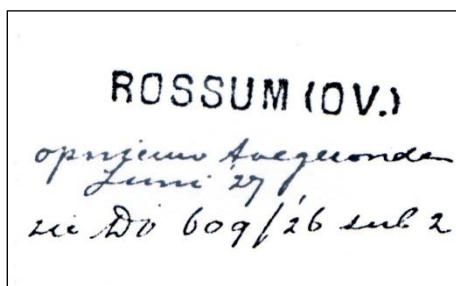 ROSSUM (OV.)
opnieuw toegezonden
Juni '27
zie Do 609/'26 sub 2